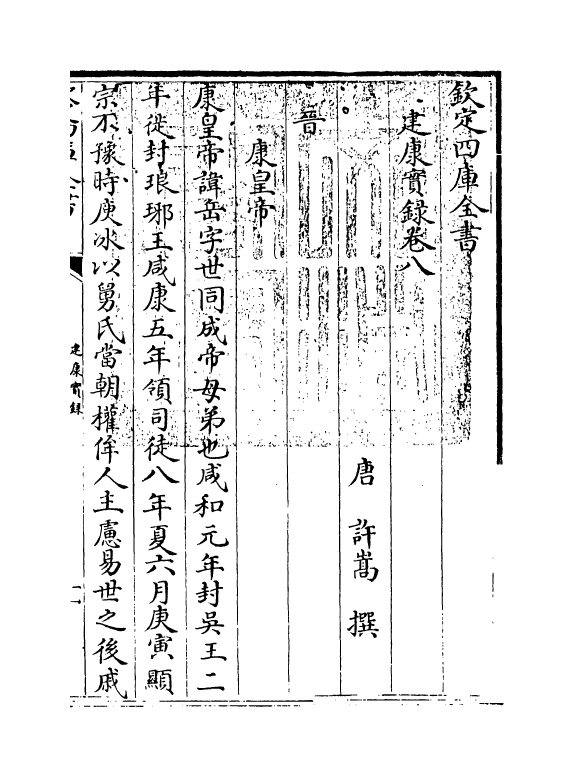 欽定四庫全書
建康實錄卷八
唐 許嵩 撰
晉
康皇帝
康皇帝諱岳字世同成帝母弟也咸和元年封吳王二
年徙封琅琊王咸康五年領司徒八年夏六月庚寅顯
宗不豫時庾冰以舅氏當朝權侔人主慮易世之後戚
建康實錄